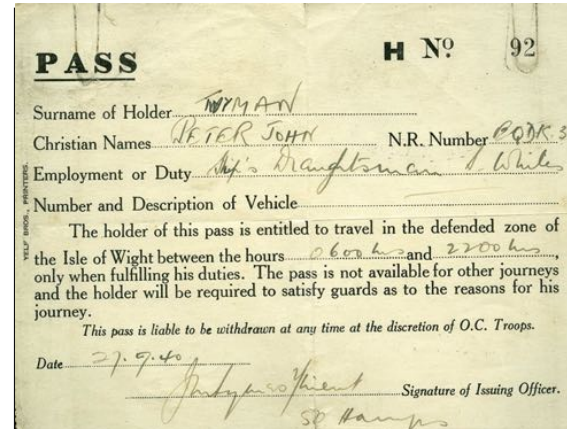 PASS
H Nº 92
Surname of Holder TWYMAN
Christian Names PETER JOHN N.R. Number EQDK.3
Employment or Duty Ship's Draughtsman J. Whites
Number and Description of Vehicle
The holder of this pass is entitled to travel in the defended zone of
the Isle of Wight between the hours 0600 hrs and 2200 hrs,
only when fulfilling his duties. The pass is not available for other journeys
and the holder will be required to satisfy guards as to the reasons for his
journey.
This pass is liable to be withdrawn at any time at the discretion of O.C. Troops.
Date 27.9.40
Signature of Issuing Officer.
Hamps
YELF BROS., PRINTERS.